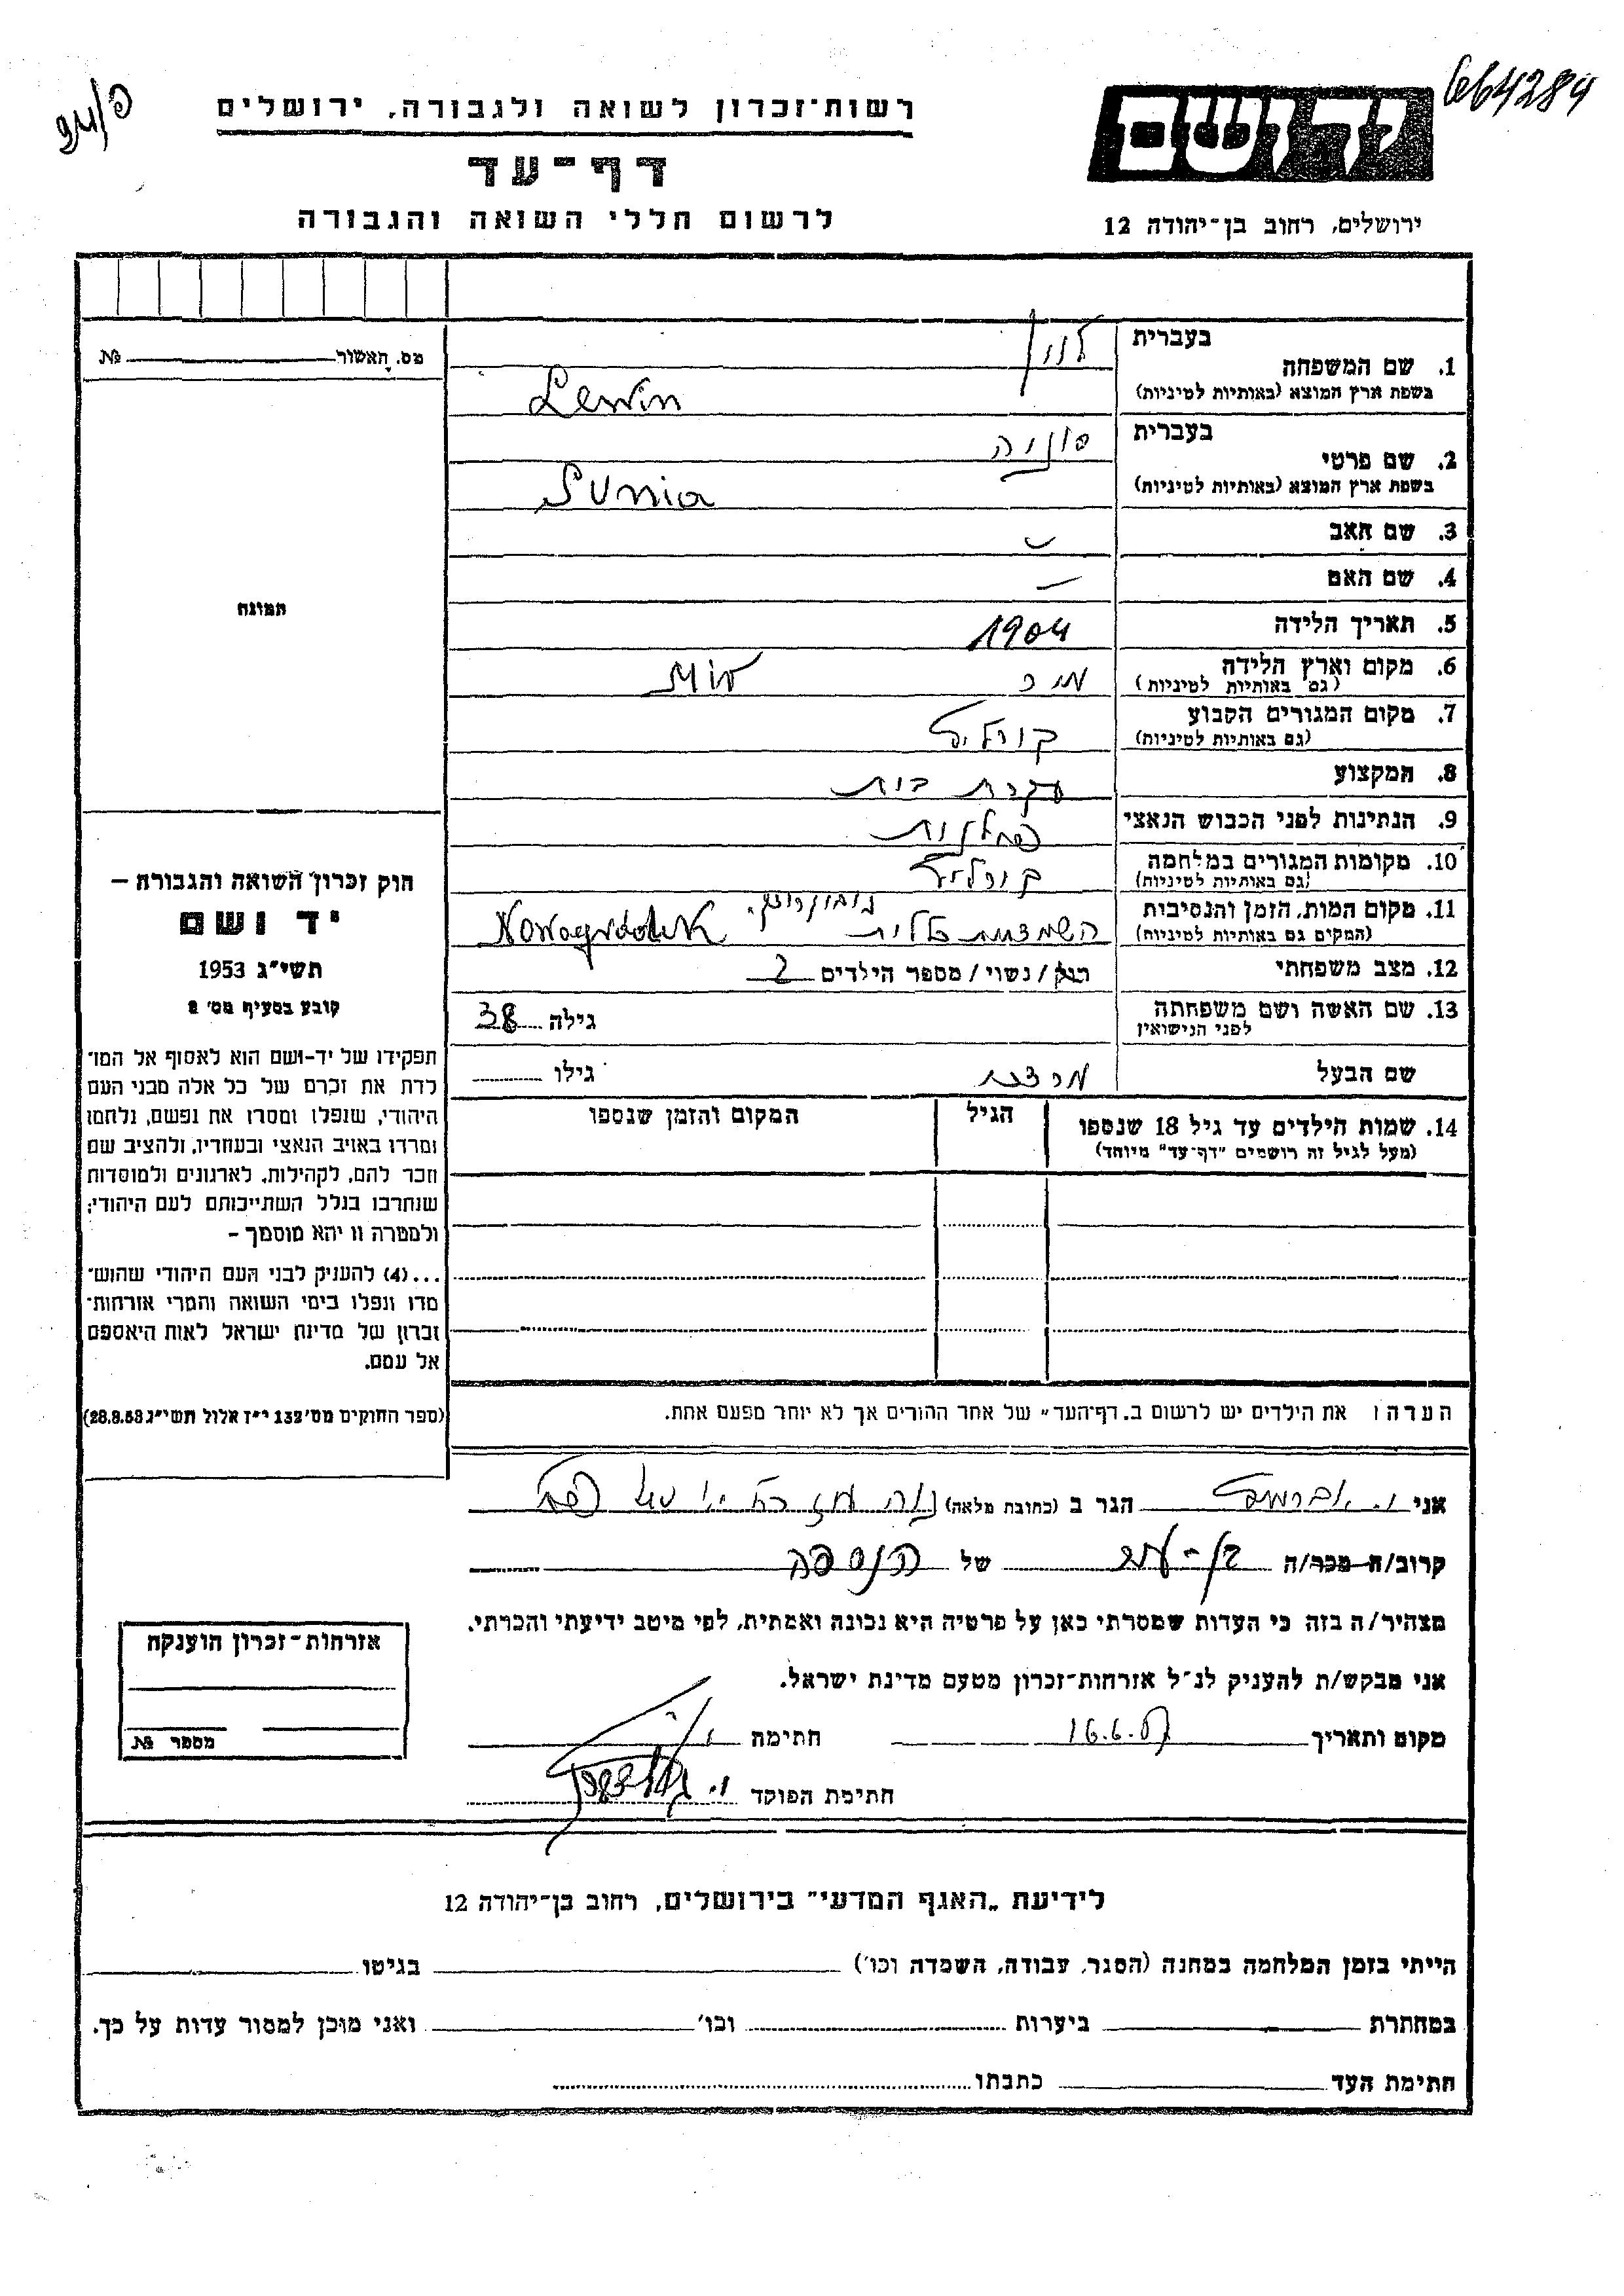 664284
94/פ
רשות־זכרון לשואה ולגבורה, ירושלים
דף־עד
לרשום חללי השואה והגבורה
יד ושם
ירושלים, רחוב בן־יהודה 12
מס. תאשור № 
1. שם המשפחה
בעברית לוין
בשפת ארץ המוצא (באותיות לטיניות) Lewin
2. שם פרטי
בעברית סוניה
בשפת ארץ המוצא (באותיות לטיניות) Sunia
3. שם האב
4. שם האם —
5. תאריך הלידה 1904
6. מקום וארץ הלידה מיר Mir
(גם באותיות לטיניות)
7. מקום המגורים הקבוע קורליץ
(גם באותיות לטיניות)
8. המקצוע עקרת בית
9. הנתינות לפני הכבוש הנאצי פולנית
10. מקומות המגורים במלחמה קורליץ
(גם באותיות לטיניות)
11. מקום המות, הזמן והנסיבות
(המקום גם באותיות לטיניות) השמדה כללית
12. מצב משפחתי רוק / נשוי / מספר הילדים 2
13. שם האשה ושם משפחתה
לפני הנישואין גילה 38
שם הבעל מרדכי גילו
14. שמות הילדים עד גיל 18 שנספו הגיל המקום והזמן שנספו
(מעל לגיל זה רושמים "דף־עד" מיוחד)
הערה: את הילדים יש לרשום ב"דף־העד" של אחד ההורים אך לא יותר מפעם אחת.
תמונה
חוק זכרון השואה והגבורה —
יד ושם
תשי״ג 1953
קובע בסעיף מס׳ 2
תפקידו של יד-ושם הוא לאסוף אל המו־
לדת את זכרם של כל אלה מבני העם
היהודי, שנפלו ומסרו את נפשם, נלחמו
ומרדו באויב הנאצי ובעוזריו, ולהציב שם
וזכר להם, לקהילות, לארגונים ולמוסדות
שנחרבו בגלל השתייכותם לעם היהודי;
ולמטרה זו יהא מוסמך –
...(4) להעניק לבני העם היהודי שהוש־
מדו ונפלו בימי השואה והמרי אזרחות־
זכרון של מדינת ישראל לאות היאספם
אל עמם.
(ספר החוקים מס׳ 132 י״ז אלול תשי״ג 28.8.53)
אני הגר ב (כתובת מלאה)
קרוב/ה מכר/ה בן-עיר של הנספה
מצהיר/ה בזה כי העדות שמסרתי כאן על פרטיה היא נכונה ואמתית, לפי מיטב ידיעתי והכרתי.
אני מבקש/ת להעניק לנ״ל אזרחות־זכרון מטעם מדינת ישראל.
מקום ותאריך 16.6.57 חתימה
חתימת הפוקד
אזרחות־זכרון הוענקה
מספר №
לידיעת „האגף המדעי״ בירושלים, רחוב בן־יהודה 12
הייתי בזמן המלחמה במחנה (הסגר, עבודה, השמדה וכו׳) בגיטו
במחתרת ביערות וכו׳ ואני מוכן למסור עדות על כך.
חתימת העד כתבתו